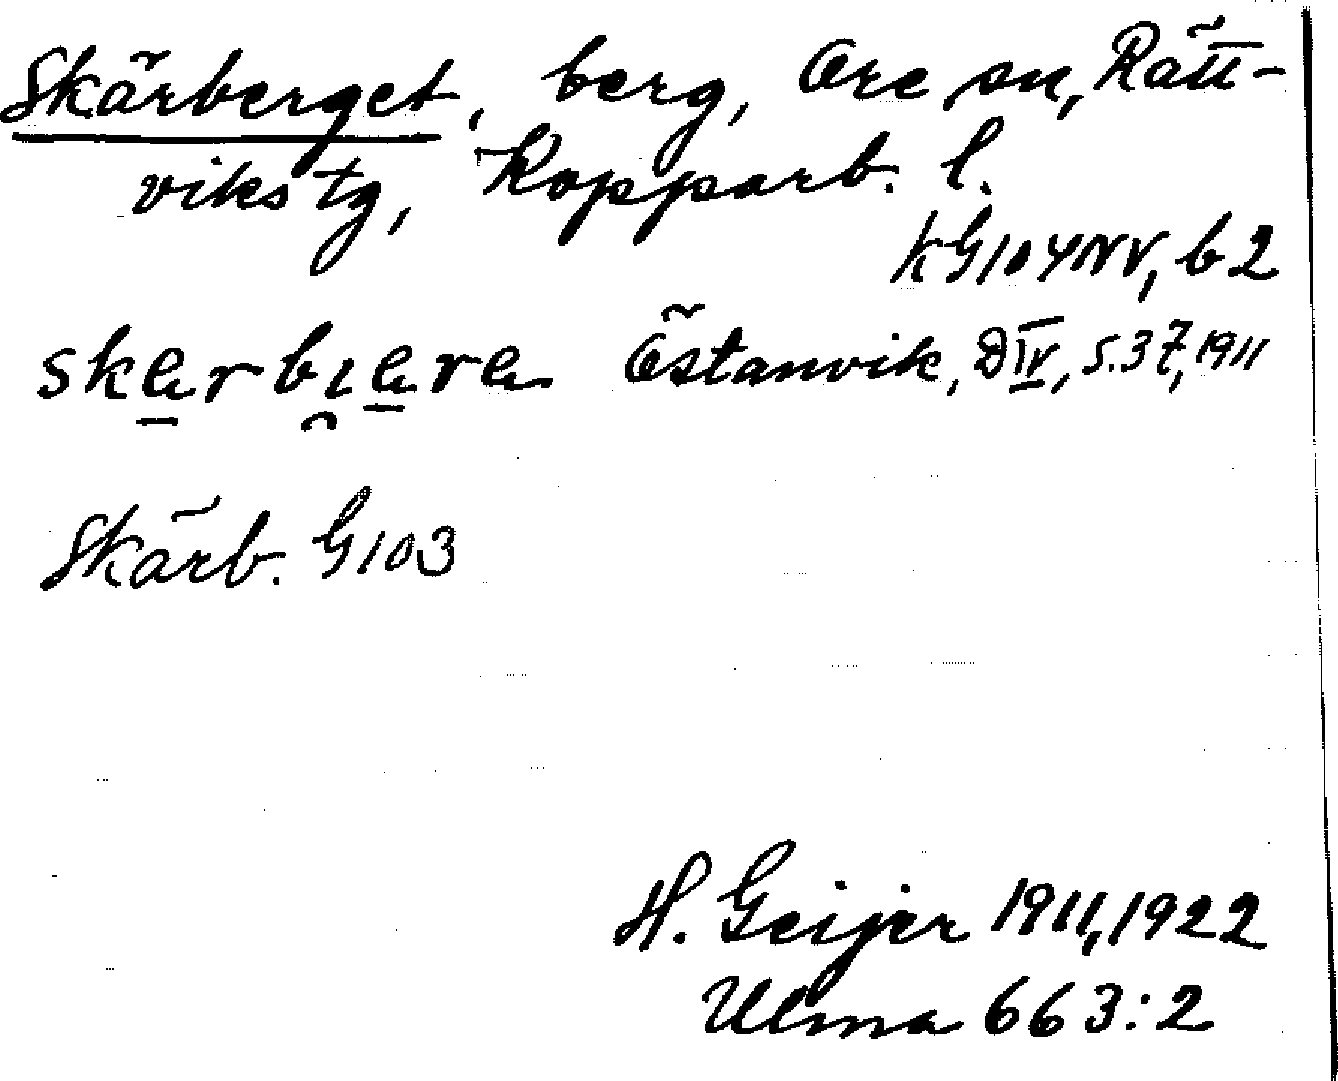 Skärberget, berg, Ore sn, Rätt-
viks tg, Kopparb. l.
KG104NV, b2
Östanvik, D IV, S. 37, 1911
Skärb. G103
H. Geijer 1911, 1922
Ulma 663:2